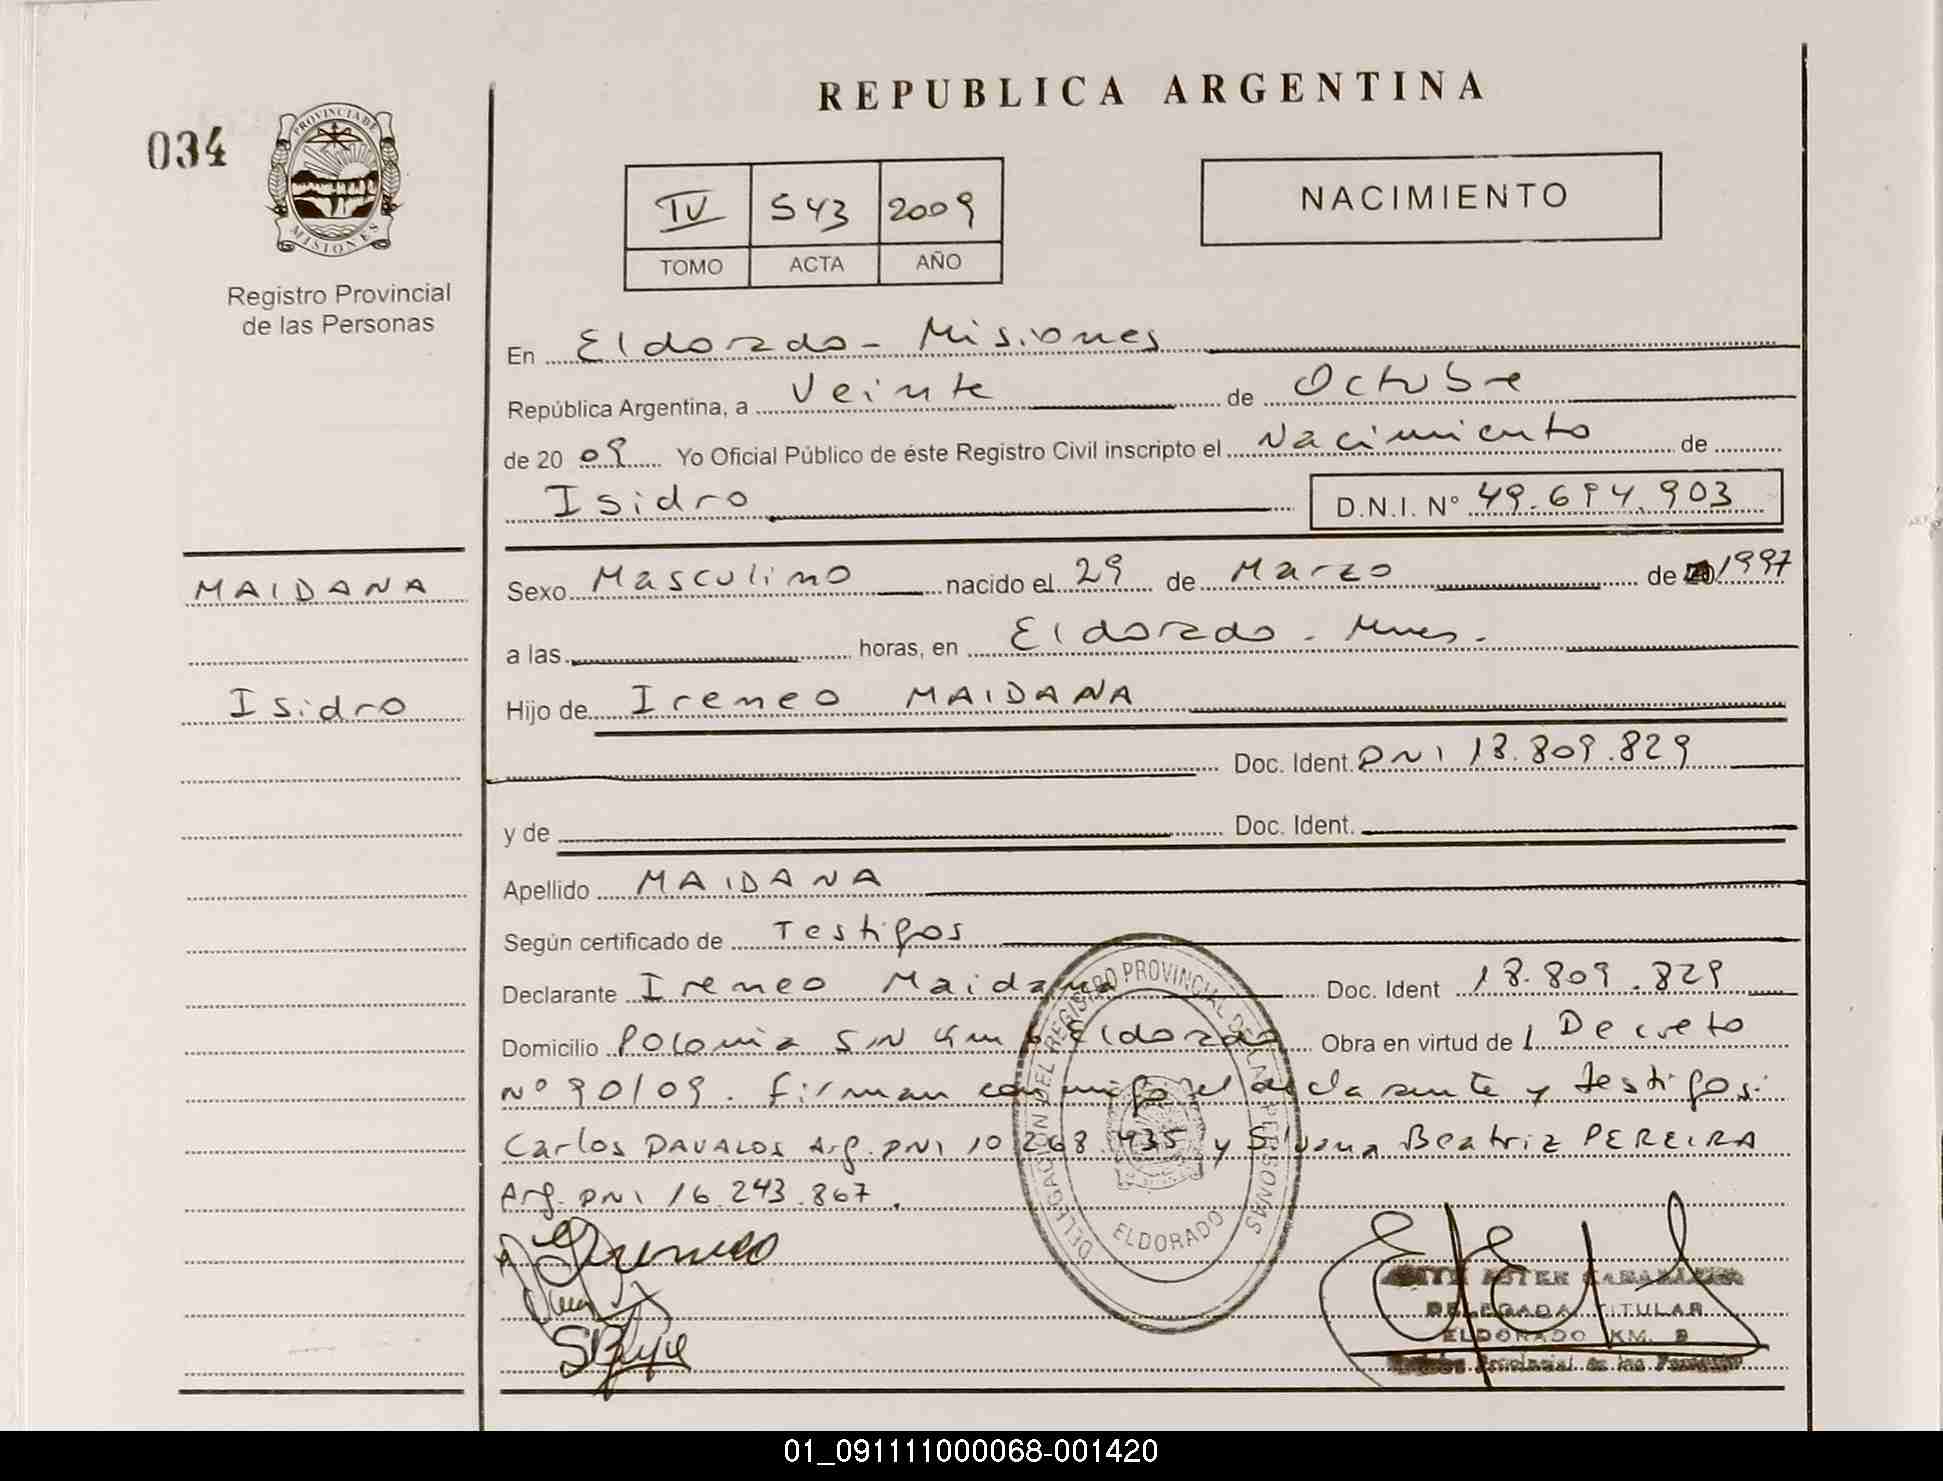 REPUBLICA ARGENTINA
034
PROVINCIA DE
MISIONES
Registro Provincial
de las Personas
IV 543 2009
TOMO ACTA AÑO
NACIMIENTO
En Eldorado - Misiones
República Argentina, a Veinte de Octubre
de 20 09 Yo Oficial Público de éste Registro Civil inscripto el Nacimiento de
Isidro D.N.I. Nº 49.694.903
MAIDANA
Isidro
Sexo Masculino nacido el 29 de Marzo de 1997
a las horas, en Eldorado - Mnes.
Hijo de Ireneo MAIDANA
Doc. Ident. DNI 18.809.829
y de Doc. Ident.
Apellido MAIDANA
Según certificado de Testigos
Declarante Ireneo Maidana Doc. Ident 18.809.829
Domicilio Polonia S/N Km 6 Eldorado Obra en virtud de Decreto
Nº 90/09. firman conmigo el declarante y testigos:
Carlos DAVALOS Arg. DNI 10.268.435 y Silvana Beatriz PEREIRA
Arg. DNI 16.243.867.
DELEGACION DEL REGISTRO PROVINCIAL DE LAS PERSONAS
ELDORADO
Ireneo
DELEGADA TITULAR
ELDORADO KM. 9
Provincial de las Personas
01_091111000068-001420